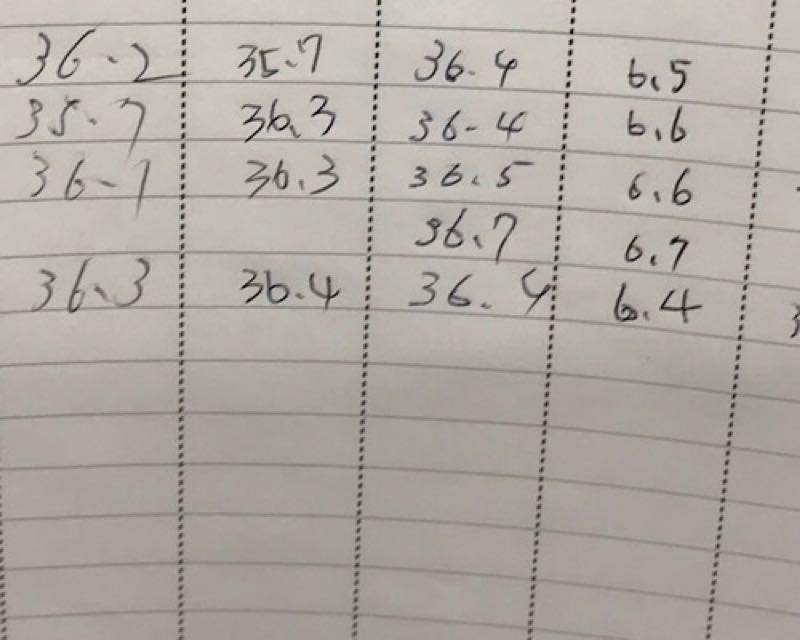 36.2 35.7 36.4 6.5
35.7 36.3 36.4 6.6
36.1 36.3 36.5 6.6
36.7 6.7
36.3 36.4 36.4 6.4